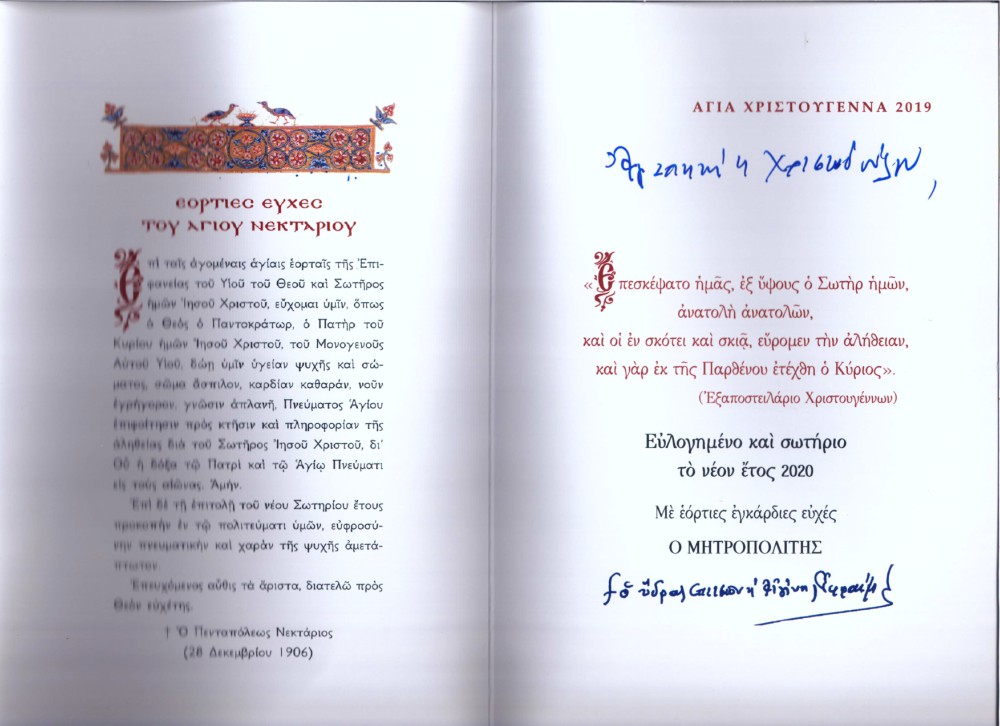 ΕΟΡΤΙΕΣ ΕΥΧΕΣ
ΤΟΥ ΑΓΙΟΥ ΝΕΚΤΑΡΙΟΥ
Ἐπὶ ταῖς ἀγομέναις ἁγίαις ἑορταῖς τῆς Ἐπι-
φανείας τοῦ Υἱοῦ τοῦ Θεοῦ καὶ Σωτῆρος
ἡμῶν Ἰησοῦ Χριστοῦ, εὔχομαι ὑμῖν, ὅπως
ὁ Θεὸς ὁ Παντοκράτωρ, ὁ Πατὴρ τοῦ
Κυρίου ἡμῶν Ἰησοῦ Χριστοῦ, τοῦ Μονογενοῦς
Αὐτοῦ Υἱοῦ, δώῃ ὑμῖν ὑγείαν ψυχῆς καὶ σώ-
ματος, σῶμα ἄσπιλον, καρδίαν καθαράν, νοῦν
ἐγρήγορον, γνῶσιν ἀπλανῆ, Πνεύματος Ἁγίου
ἐπιφοίτησιν πρὸς κτῆσιν καὶ πληροφορίαν τῆς
ἀληθείας διὰ τοῦ Σωτῆρος Ἰησοῦ Χριστοῦ, δι'
Οὗ ἡ δόξα τῷ Πατρὶ καὶ τῷ Ἁγίῳ Πνεύματι
εἰς τοὺς αἰῶνας. Ἀμήν.
Ἐπὶ δὲ τῇ ἐπιτολῇ τοῦ νέου Σωτηρίου ἔτους
προκοπὴν ἐν τῷ πολιτεύματι ὑμῶν, εὐφροσύ-
νην πνευματικὴν καὶ χαρὰν τῆς ψυχῆς ἀμετά-
πτωτον.
Ἐπευχόμενος αὖθις τὰ ἄριστα, διατελῶ πρὸς
Θεὸν εὐχέτης.
† Ὁ Πενταπόλεως Νεκτάριος
(28 Δεκεμβρίου 1906)
ΑΓΙΑ ΧΡΙΣΤΟΥΓΕΝΝΑ 2019
«Ἐπεσκέψατο ἡμᾶς, ἐξ ὕψους ὁ Σωτὴρ ἡμῶν,
ἀνατολὴ ἀνατολῶν,
καὶ οἱ ἐν σκότει καὶ σκιᾷ, εὕρομεν τὴν ἀλήθειαν,
καὶ γὰρ ἐκ τῆς Παρθένου ἐτέχθη ὁ Κύριος».
(Ἐξαποστειλάριο Χριστουγέννων)
Εὐλογημένο καὶ σωτήριο
τὸ νέον ἔτος 2020
Μὲ ἑόρτιες ἐγκάρδιες εὐχές
Ο ΜΗΤΡΟΠΟΛΙΤΗΣ
† ὁ Ὕδρας Αἰγίνης Ἐφραίμ